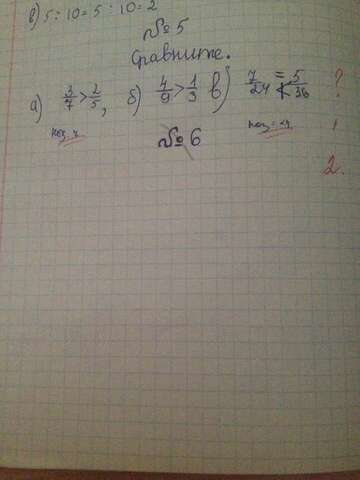 в) 5 : 10 = 5 : 10 = 2
№ 5
Сравните.
а) 3/7 > 2/5, б) 4/9 > 1/3 в) 7/24 = 5/36 ?
№ 6
2.